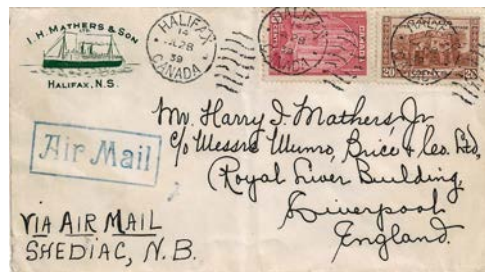 I. H. MATHERS & SON
HALIFAX, N.S.
HALIFAX
14
JL 28
39
CANADA
CANADA
20 20
Air Mail
Mr. Harry I. Mathers, Jr.
c/o Messrs Munro, Brice & Co. Ltd,
Royal Liver Building,
Liverpool
England.
VIA AIR MAIL
SHEDIAC, N.B.